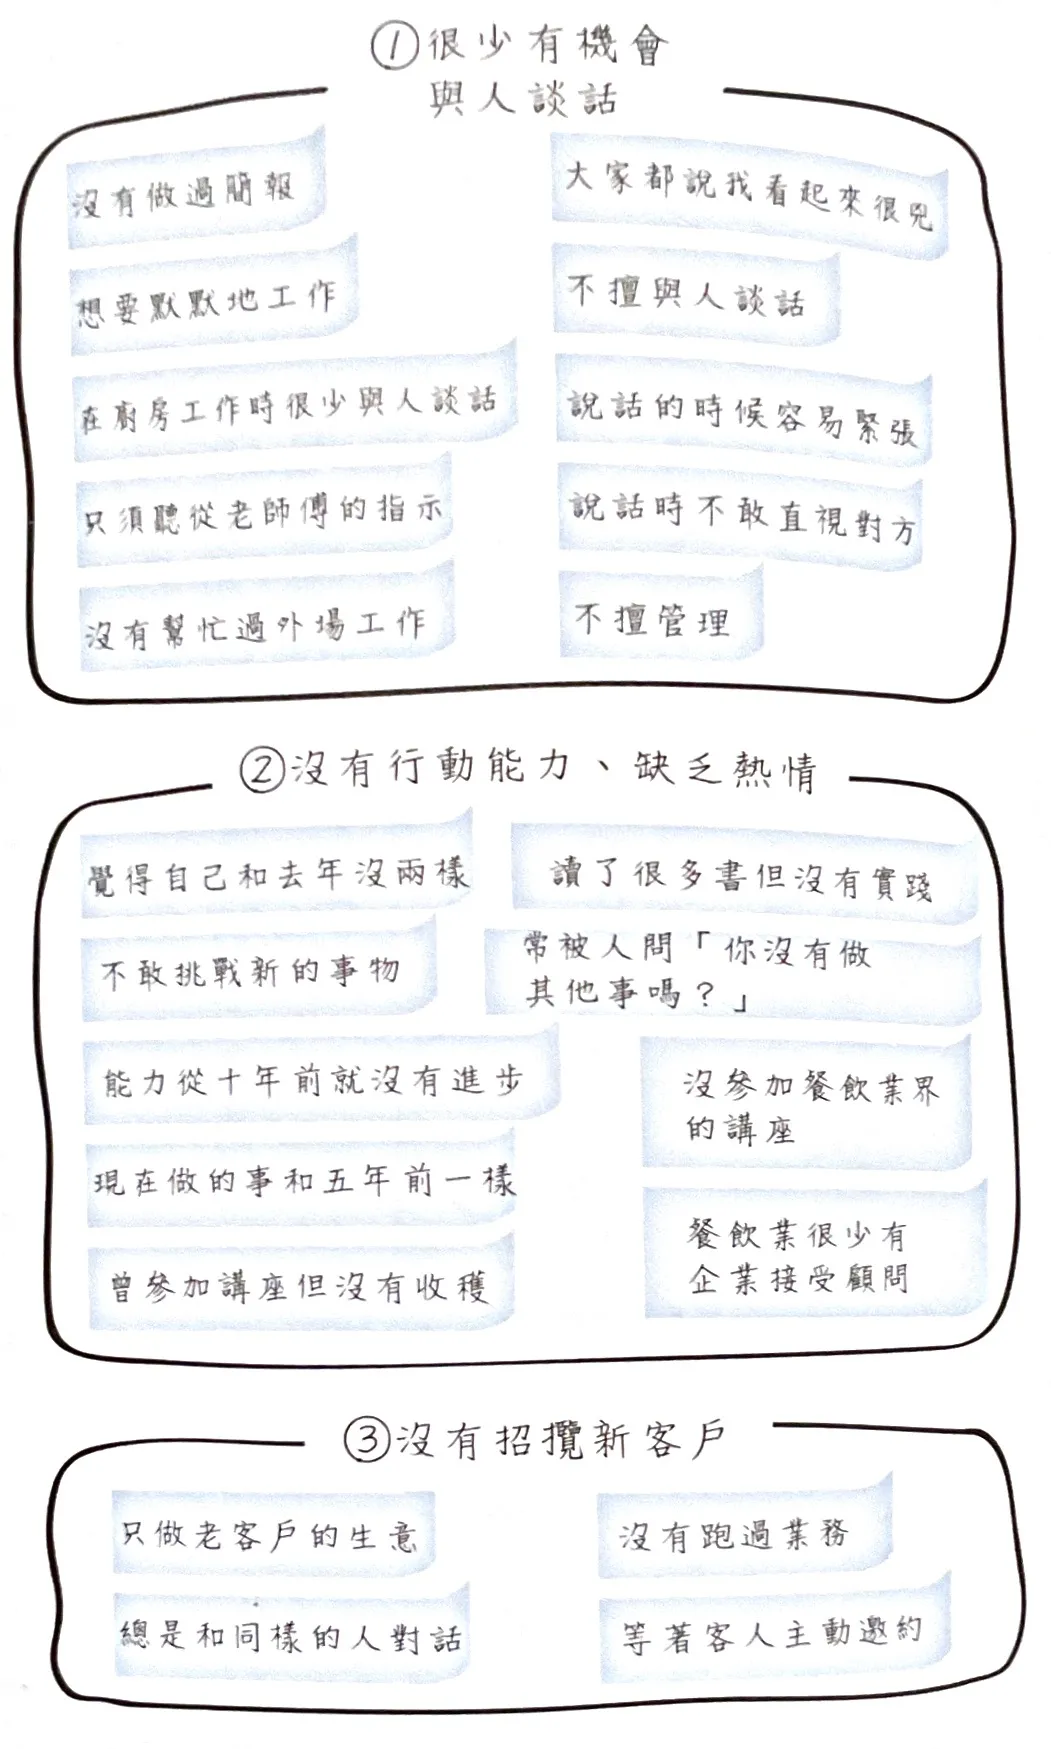 ①很少有機會
與人談話
沒有做過簡報
想要默默地工作
在廚房工作時很少與人談話
只須聽從老師傅的指示
沒有幫忙過外場工作
大家都說我看起來很兇
不擅與人談話
說話的時候容易緊張
說話時不敢直視對方
不擅管理
②沒有行動能力、缺乏熱情
覺得自己和去年沒兩樣
不敢挑戰新的事物
能力從十年前就沒有進步
現在做的事和五年前一樣
曾參加講座但沒有收穫
讀了很多書但沒有實踐
常被人問「你沒有做
其他事嗎？」
沒參加餐飲業界
的講座
餐飲業很少有
企業接受顧問
③沒有招攬新客戶
只做老客戶的生意
總是和同樣的人對話
沒有跑過業務
等著客人主動邀約